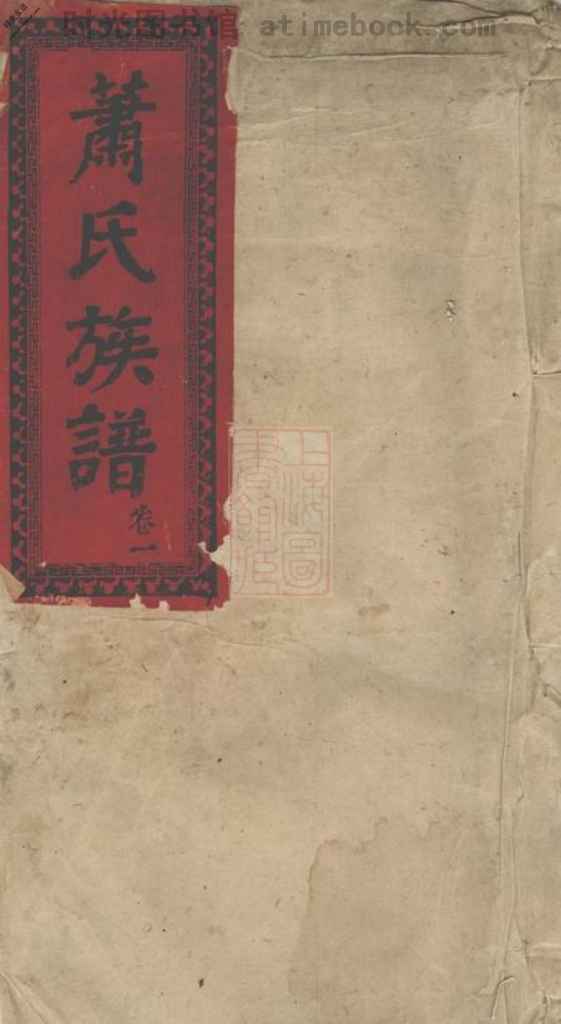 时光图书馆 atimebook.com
蕭氏族譜
卷一
上海圖
書館藏